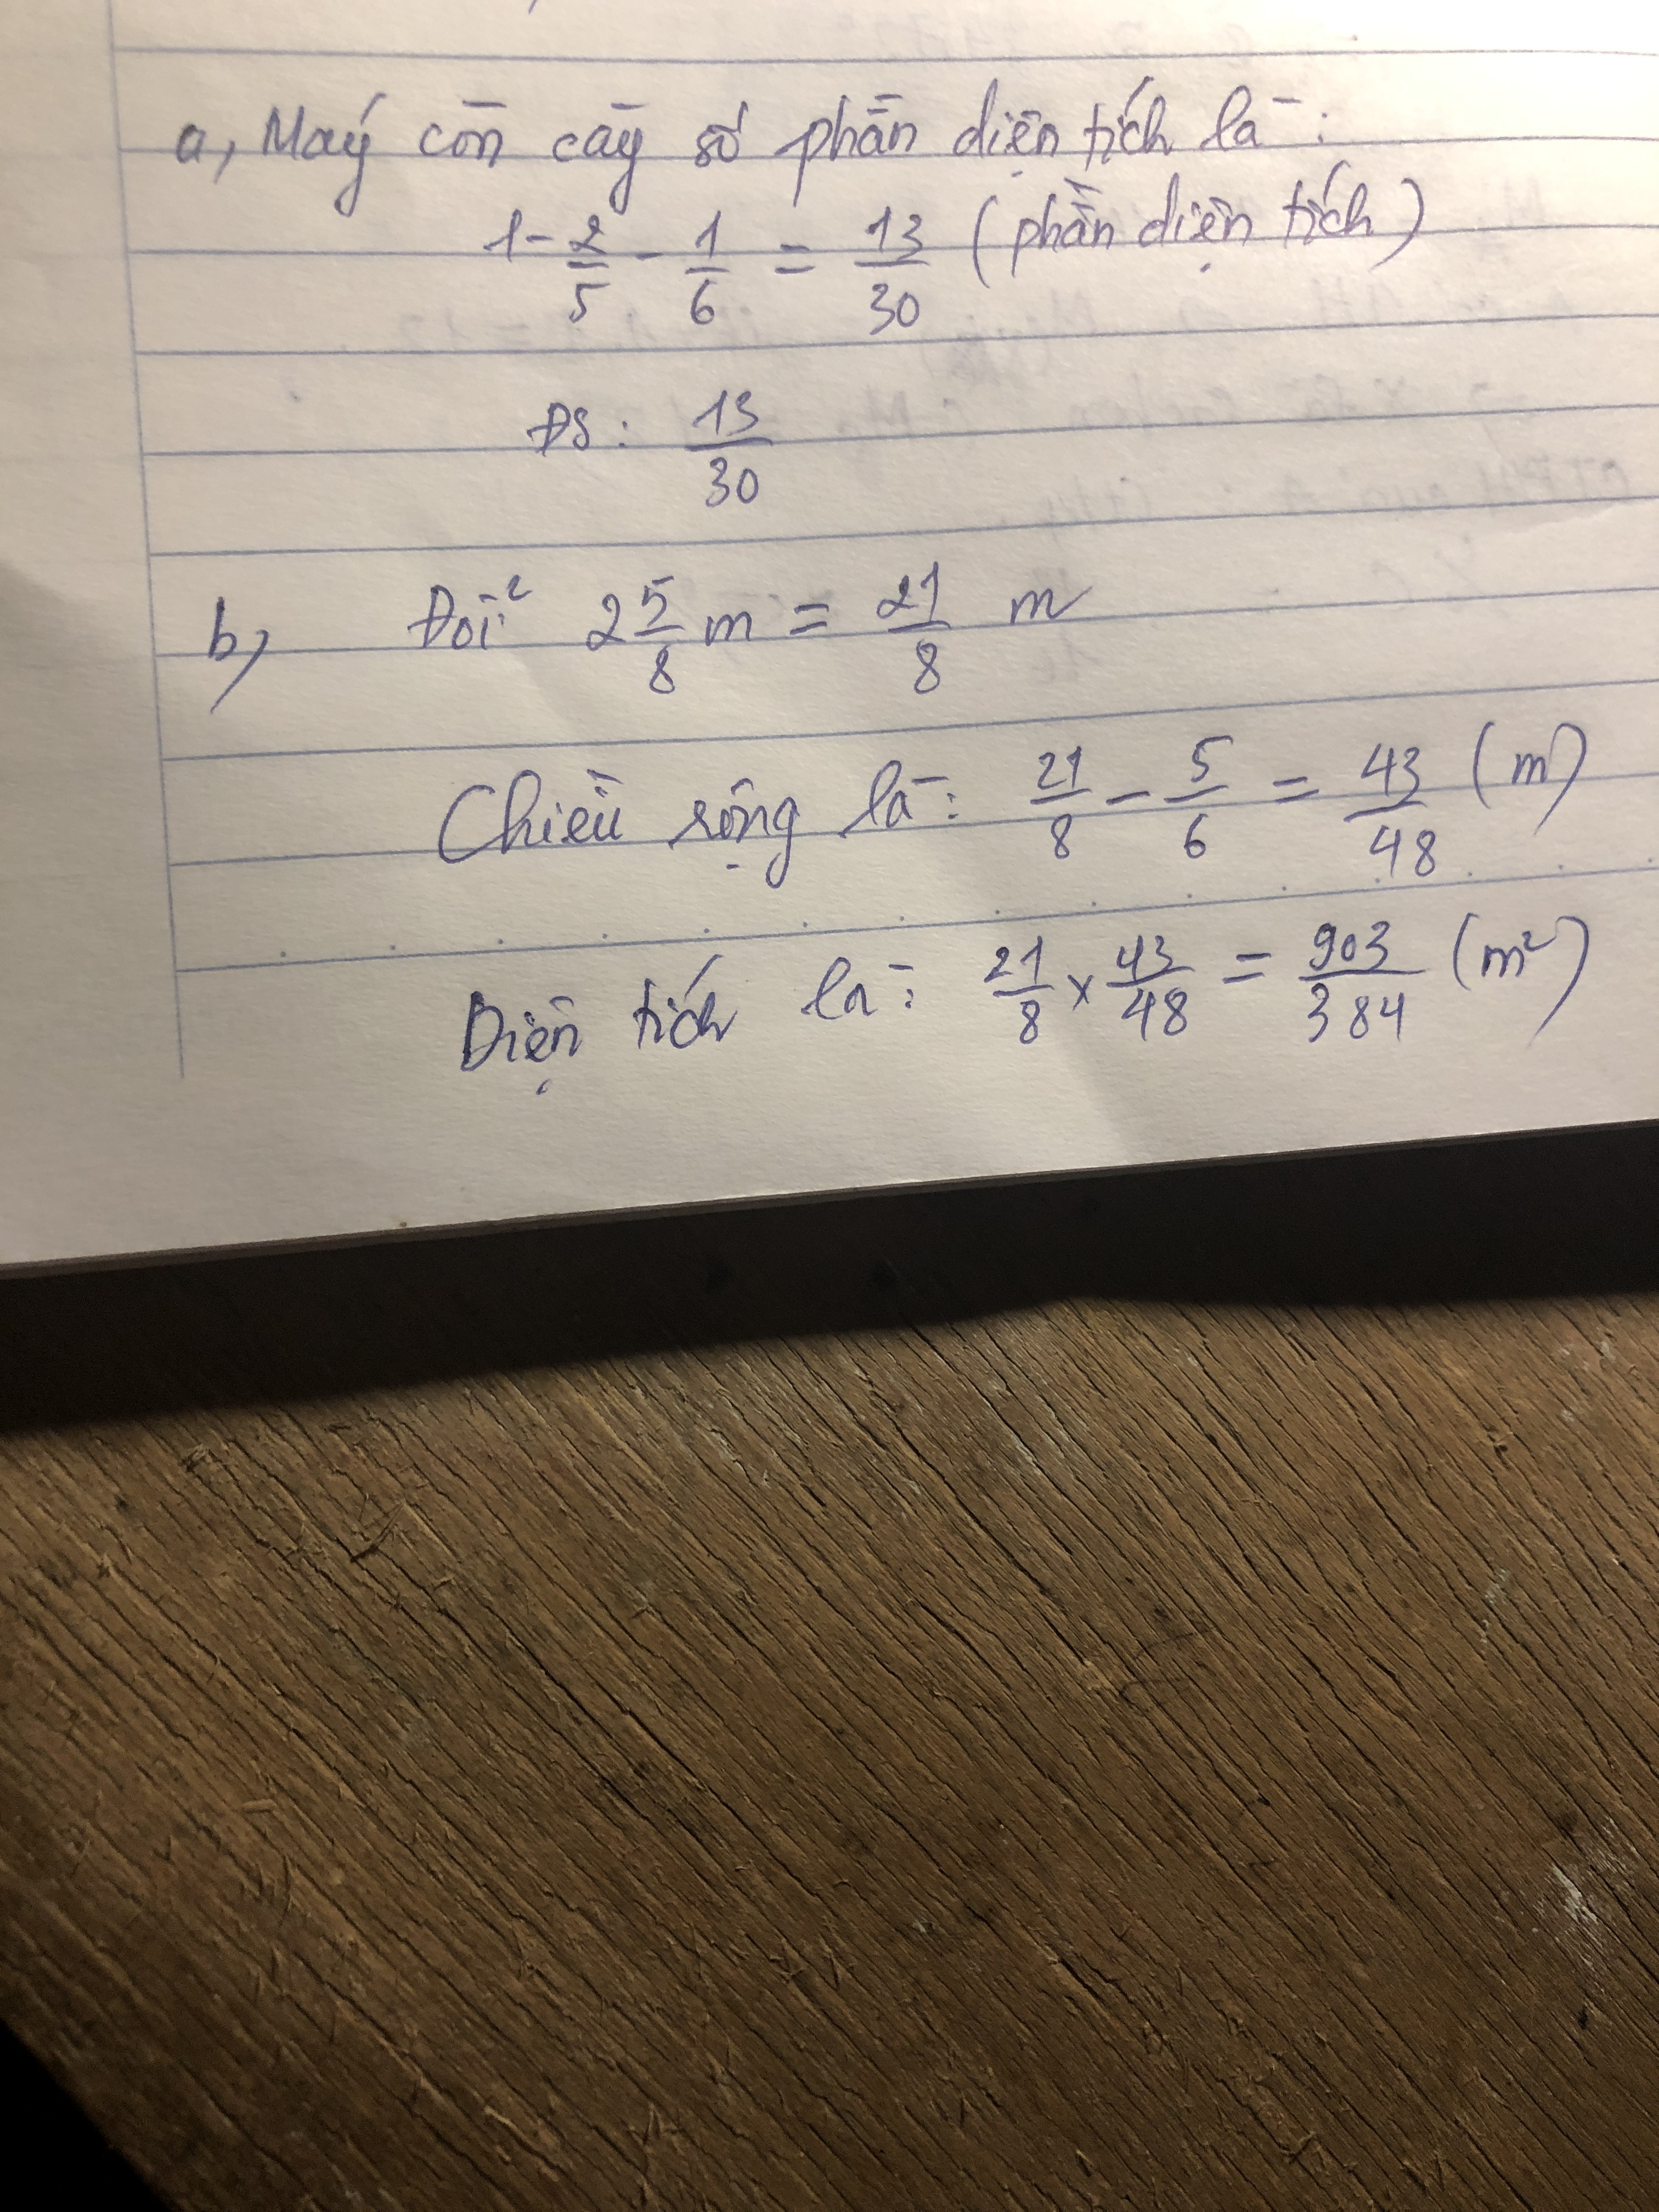 a, Máy còn cày số phần diện tích là:
1 - 2/5 - 1/6 = 13/30 (phần diện tích)
ĐS: 13/30
b, Đổi 2 5/8 m = 21/8 m
Chiều rộng là: 21/8 - 5/6 = 43/48 (m)
Diện tích là: 21/8 x 43/48 = 903/384 (m²)